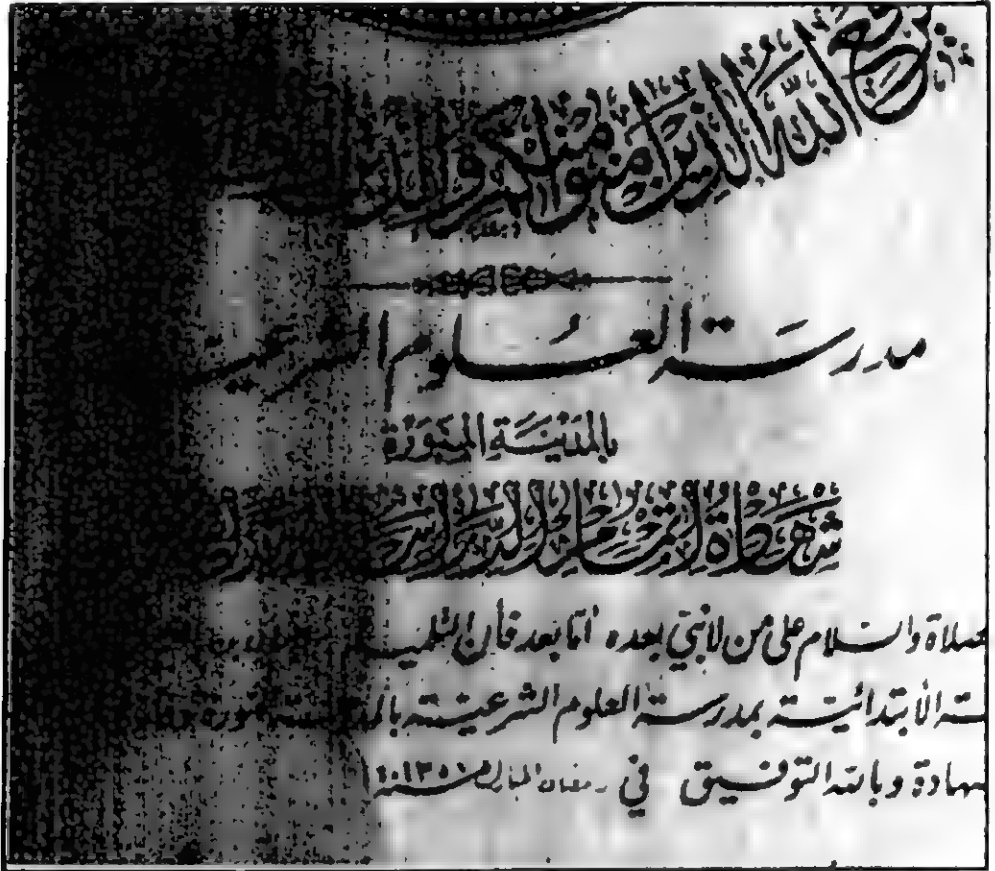 يرفع الله الذين آمنوا منكم والذين
مدرسة العلوم الشرعية
بالمدينة المنورة
شهادة إتمام الدراسة
صلاة والسلام على من لا نبي بعده أما بعد فأن التلميذ
ـة الأبتدائية بمدرسة العلوم الشرعية بالمدينة المنورة
ـهادة وبالله التوفيق في رمضان المبارك سنة ١٣٥١